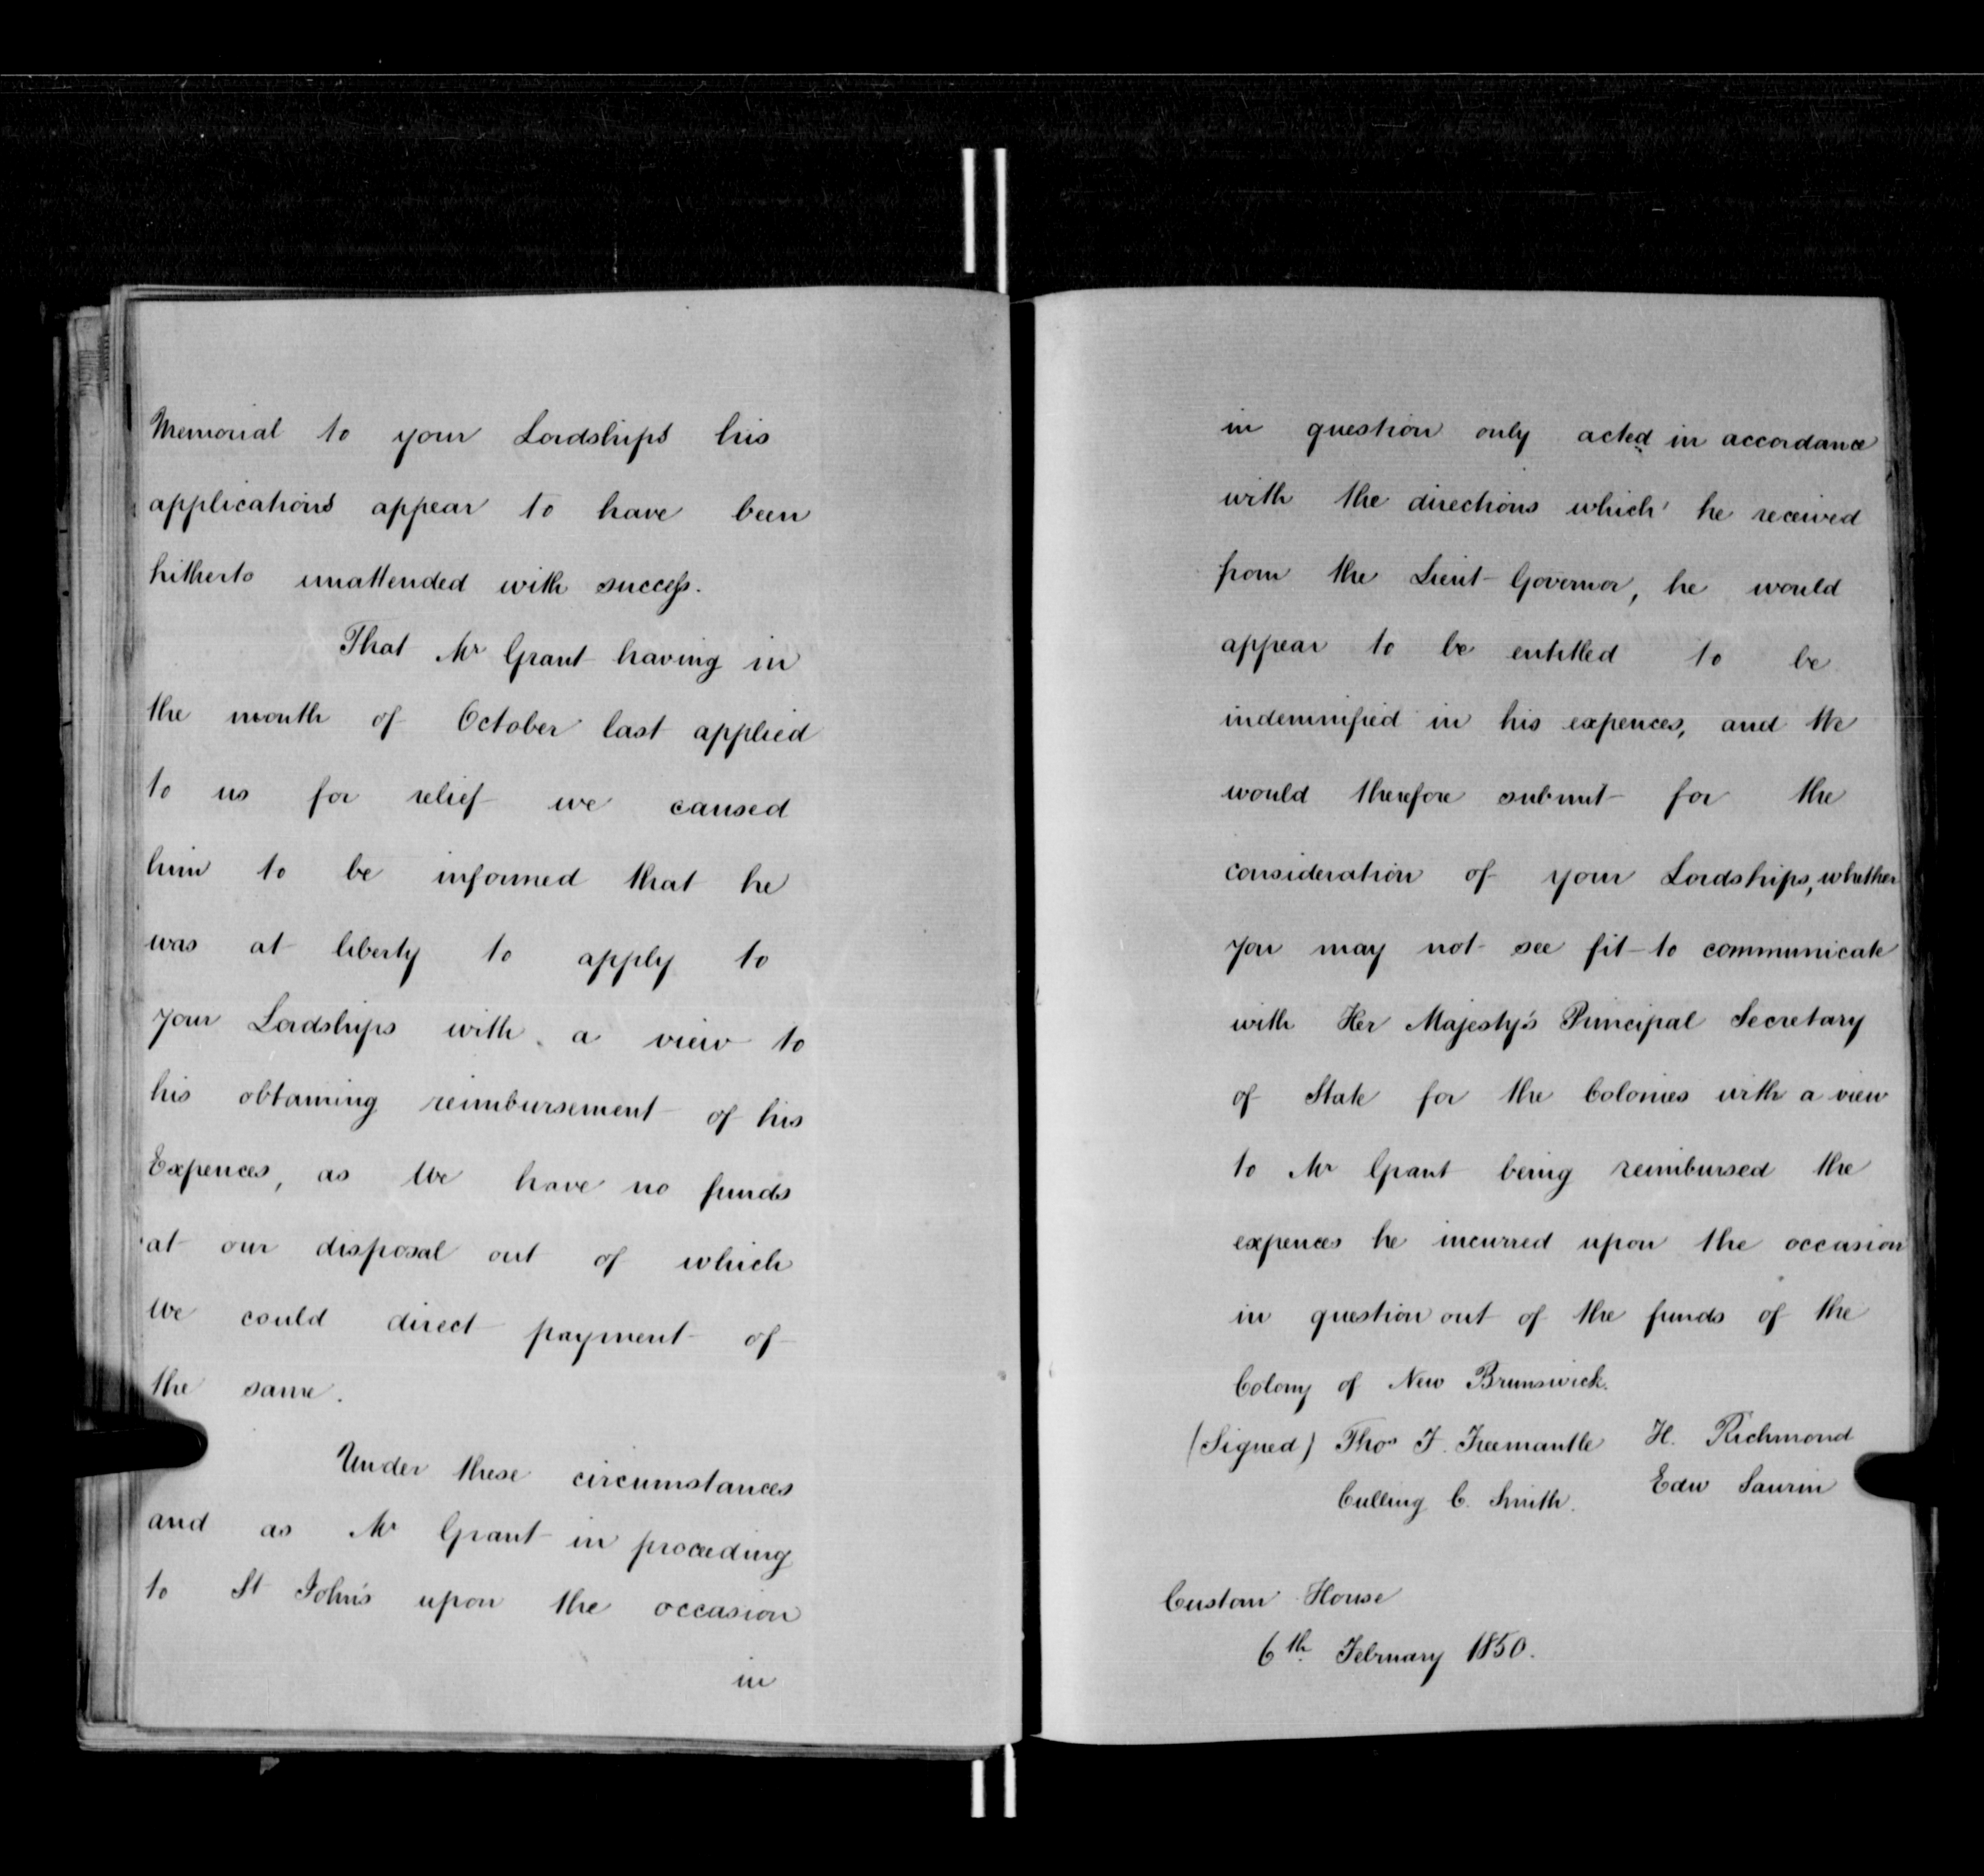 Memorial to your Lordships his
applications appear to have been
hitherto unattended with success.
That Mr Grant having in
the month of October last applied
to us for relief we caused
him to be informed that he
was at liberty to apply to
your Lordships with a view to
his obtaining reimbursement of his
Expences, as We have no funds
at our disposal out of which
We could direct payment of
the same.
Under these circumstances
and as Mr Grant in proceeding
to St John's upon the occasion
in
in question only acted in accordance
with the directions which he received
from the Lieut Governor, he would
appear to be entitled to be
indemnified in his expences, and We
would therefore submit for the
consideration of your Lordships, whether
you may not see fit to communicate
with Her Majesty's Principal Secretary
of State for the Colonies with a view
to Mr Grant being reimbursed the
expences he incurred upon the occasion
in question out of the funds of the
Colony of New Brunswick.
(Signed) Thos F. Freemantle H. Richmond
Culling C. Smith. Edw Saurin
Custom House
6th February 1850.